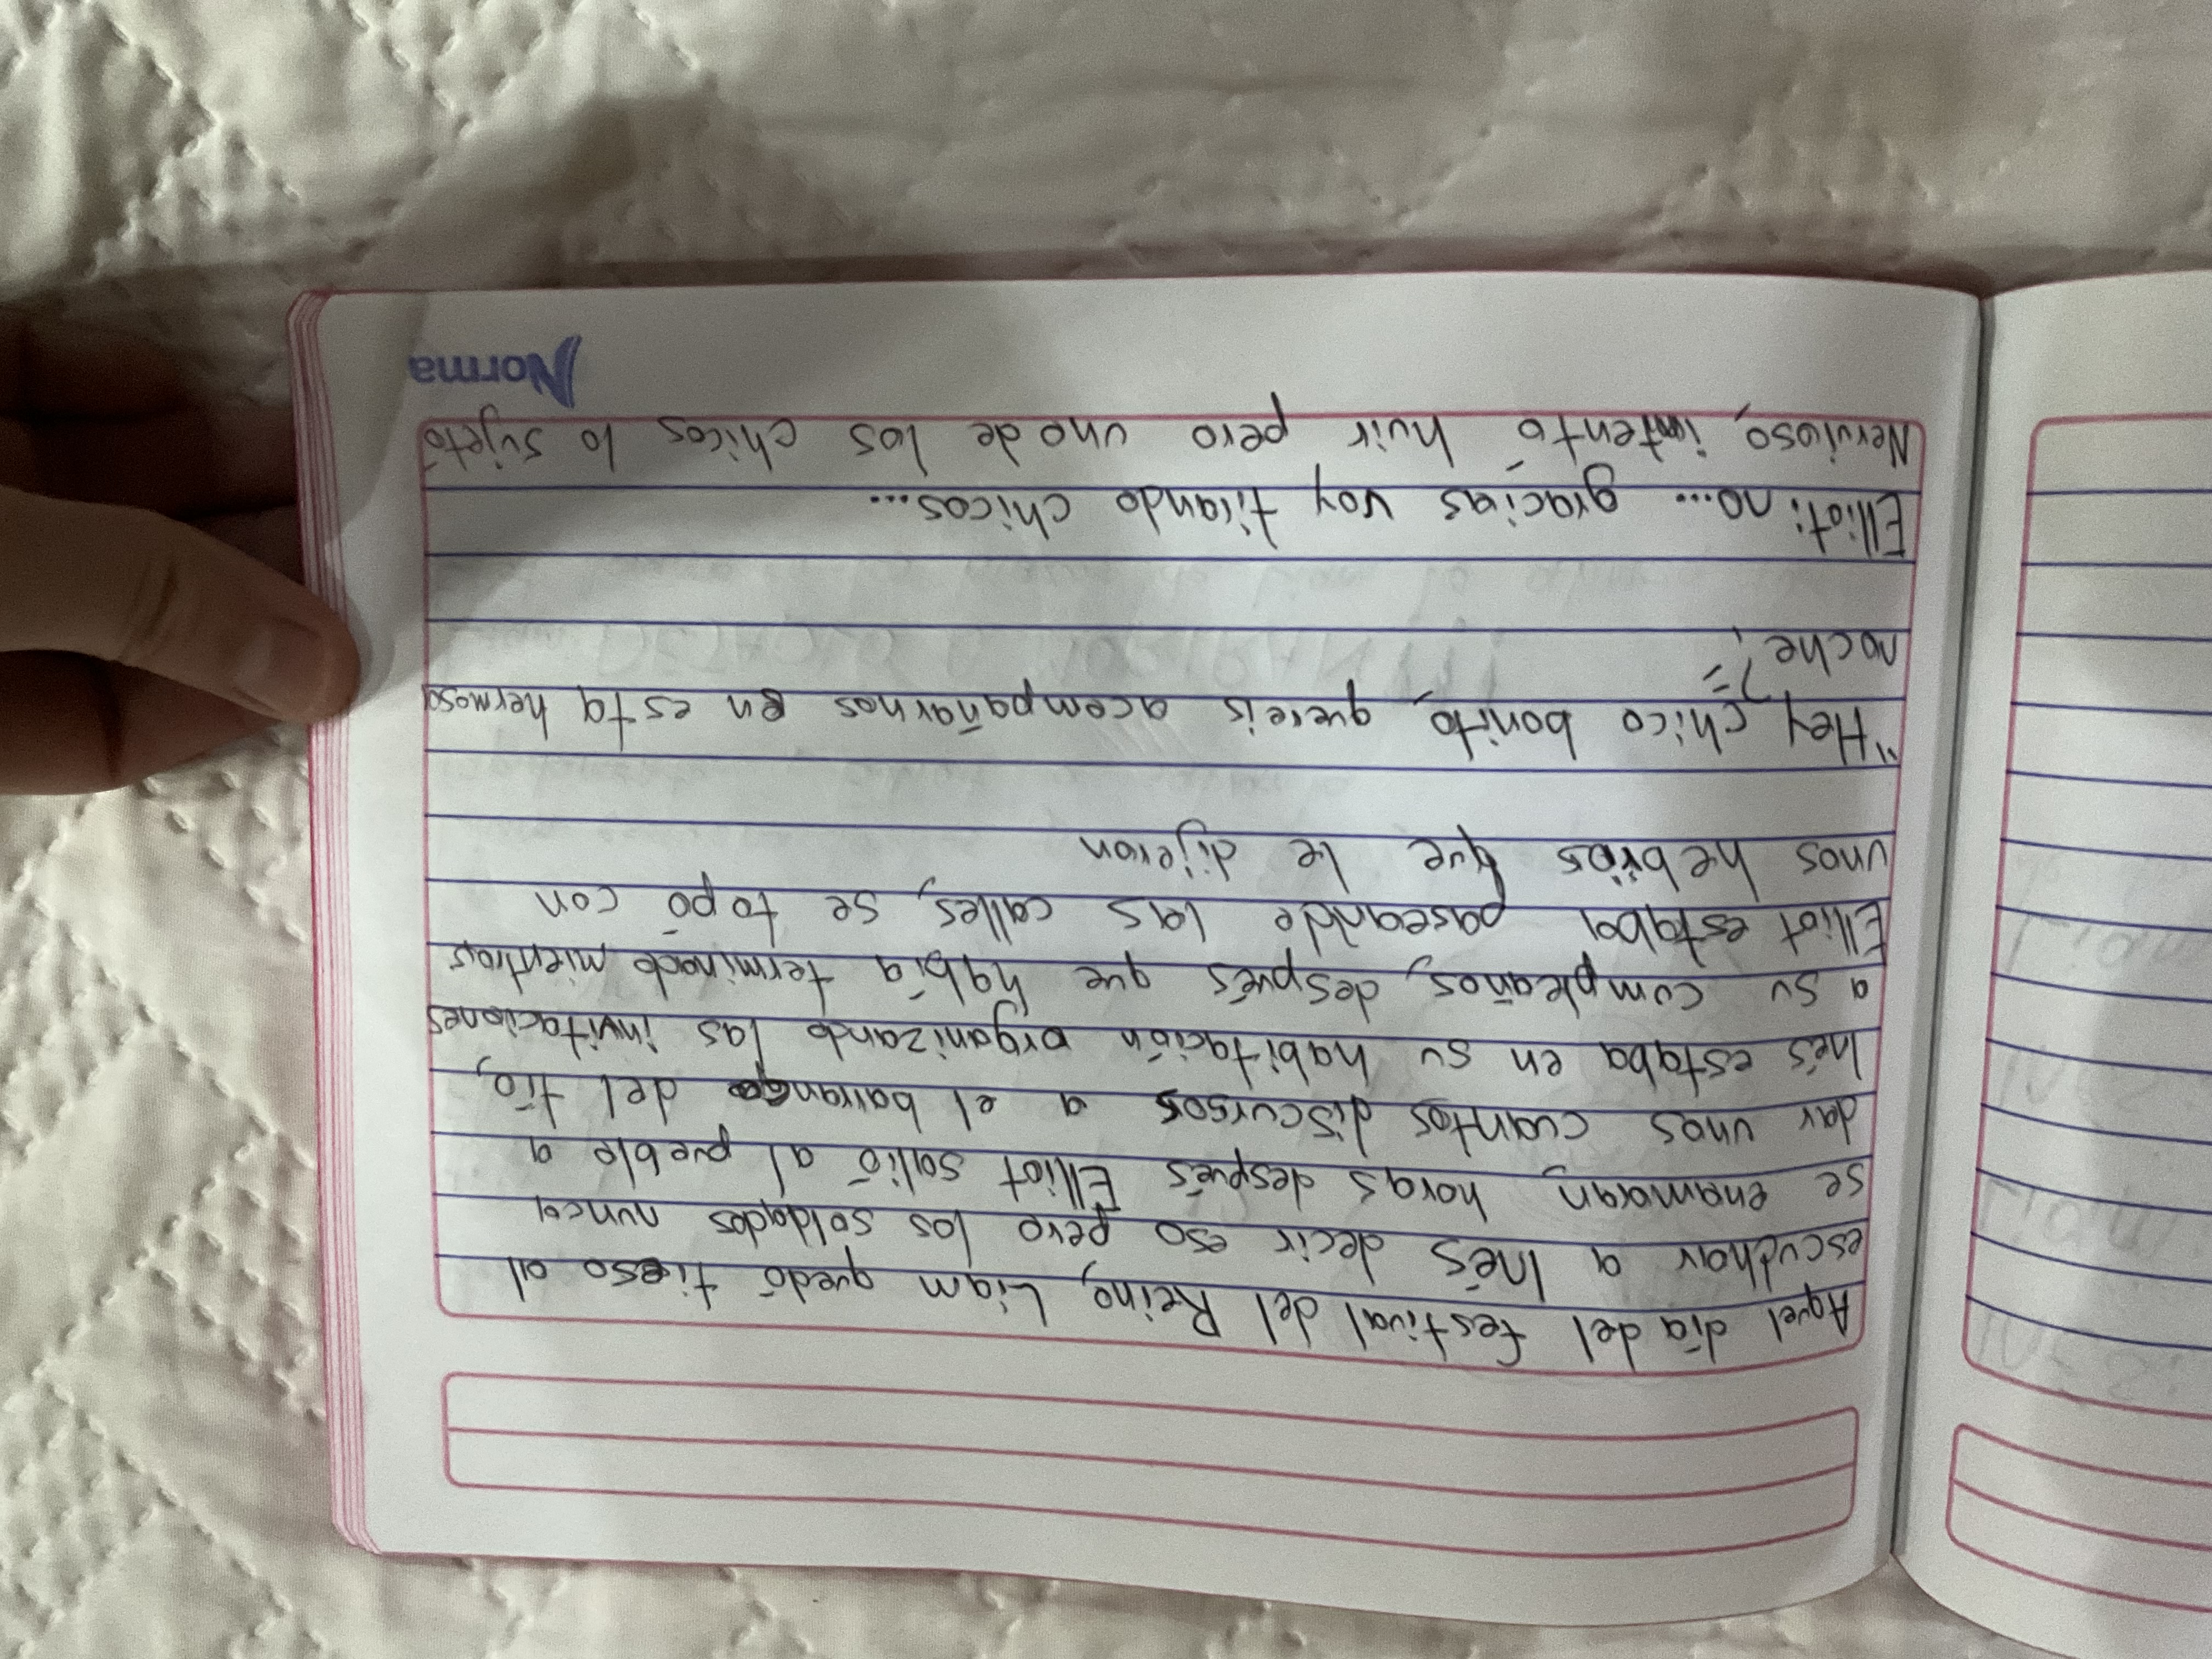 Aquel día del festival del Reino, Liam quedó tieso al
escuchar a Inés decir eso pero los soldados nunca
se enamoran, horas después Elliot salió al pueblo a
dar unos cuantos discursos a el barranco del tío,
Inés estaba en su habitación organizando las invitaciones
a su cumpleaños, después que había terminado mientras
Elliot estaba paseando las calles, se topó con
unos hebrios que le dijeron
"Hey chico bonito, quereis acompañarnos en esta hermosa
noche?"
Elliot: no... gracias voy tirando chicos...
Nervioso, intentó huir pero uno de los chicos lo sujetó
Norma